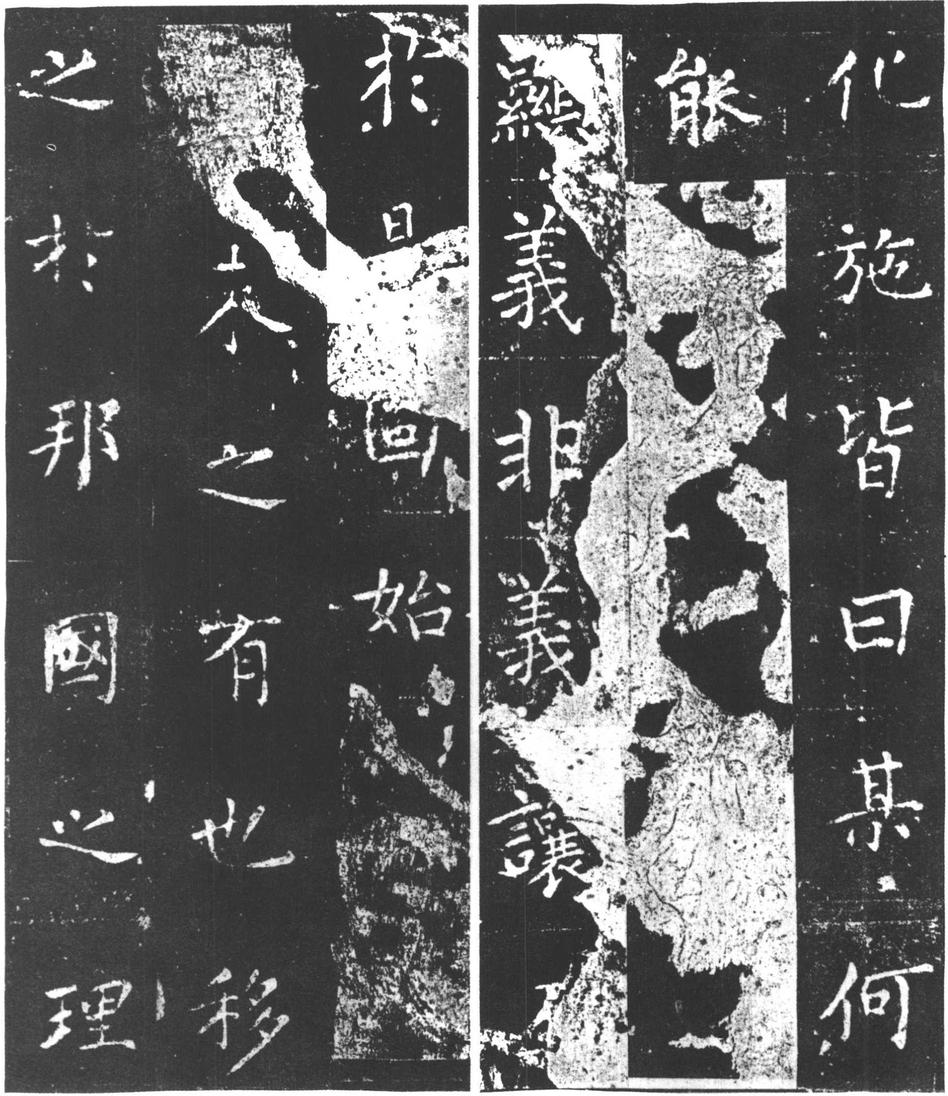 化施皆曰某何
能
顯義非義讓
於日回始
未之有也移
之於邦國之理